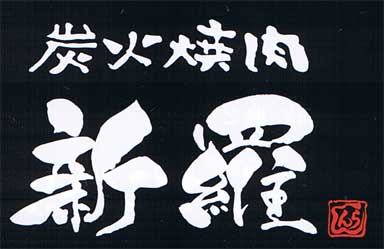 炭火焼肉
新羅
しんら